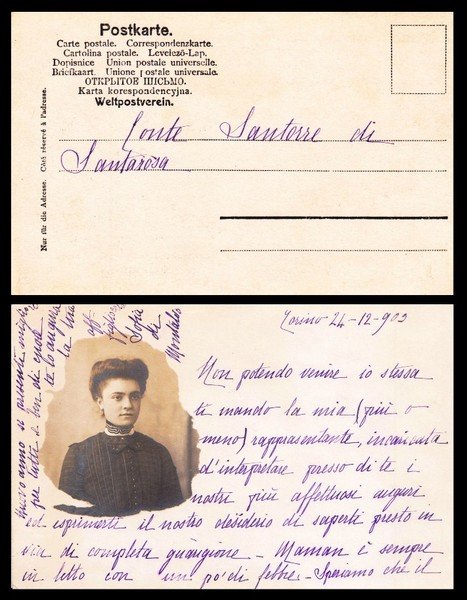 Postkarte.
Carte postale. Correspondenzkarte.
Cartolina postale. Levelező-Lap.
Dopisnice Union postale universelle.
Briefkaart. Unione postale universale.
ОТКРЫТОЕ ПИСЬМО.
Karta korespondencyjna.
Weltpostverein.
Nur für die Adresse. Côté réservé à l'adresse.
Conte Santorre di
Santarosa
Torino 24-12-903
Non potendo venire io stessa
ti mando la mia (più o
meno) rappresentante, incaricata
d'interpretare presso di te i
nostri più affettuosi auguri
ed esprimerti il nostro desiderio di saperti presto in
via di completa guarigione - Maman è sempre
in letto con un po' di febbre. - Speriamo che il
nuovo anno si presenti meglio
per tutti e ben di cuore
te lo augura
la tua
aff
Sofia
di